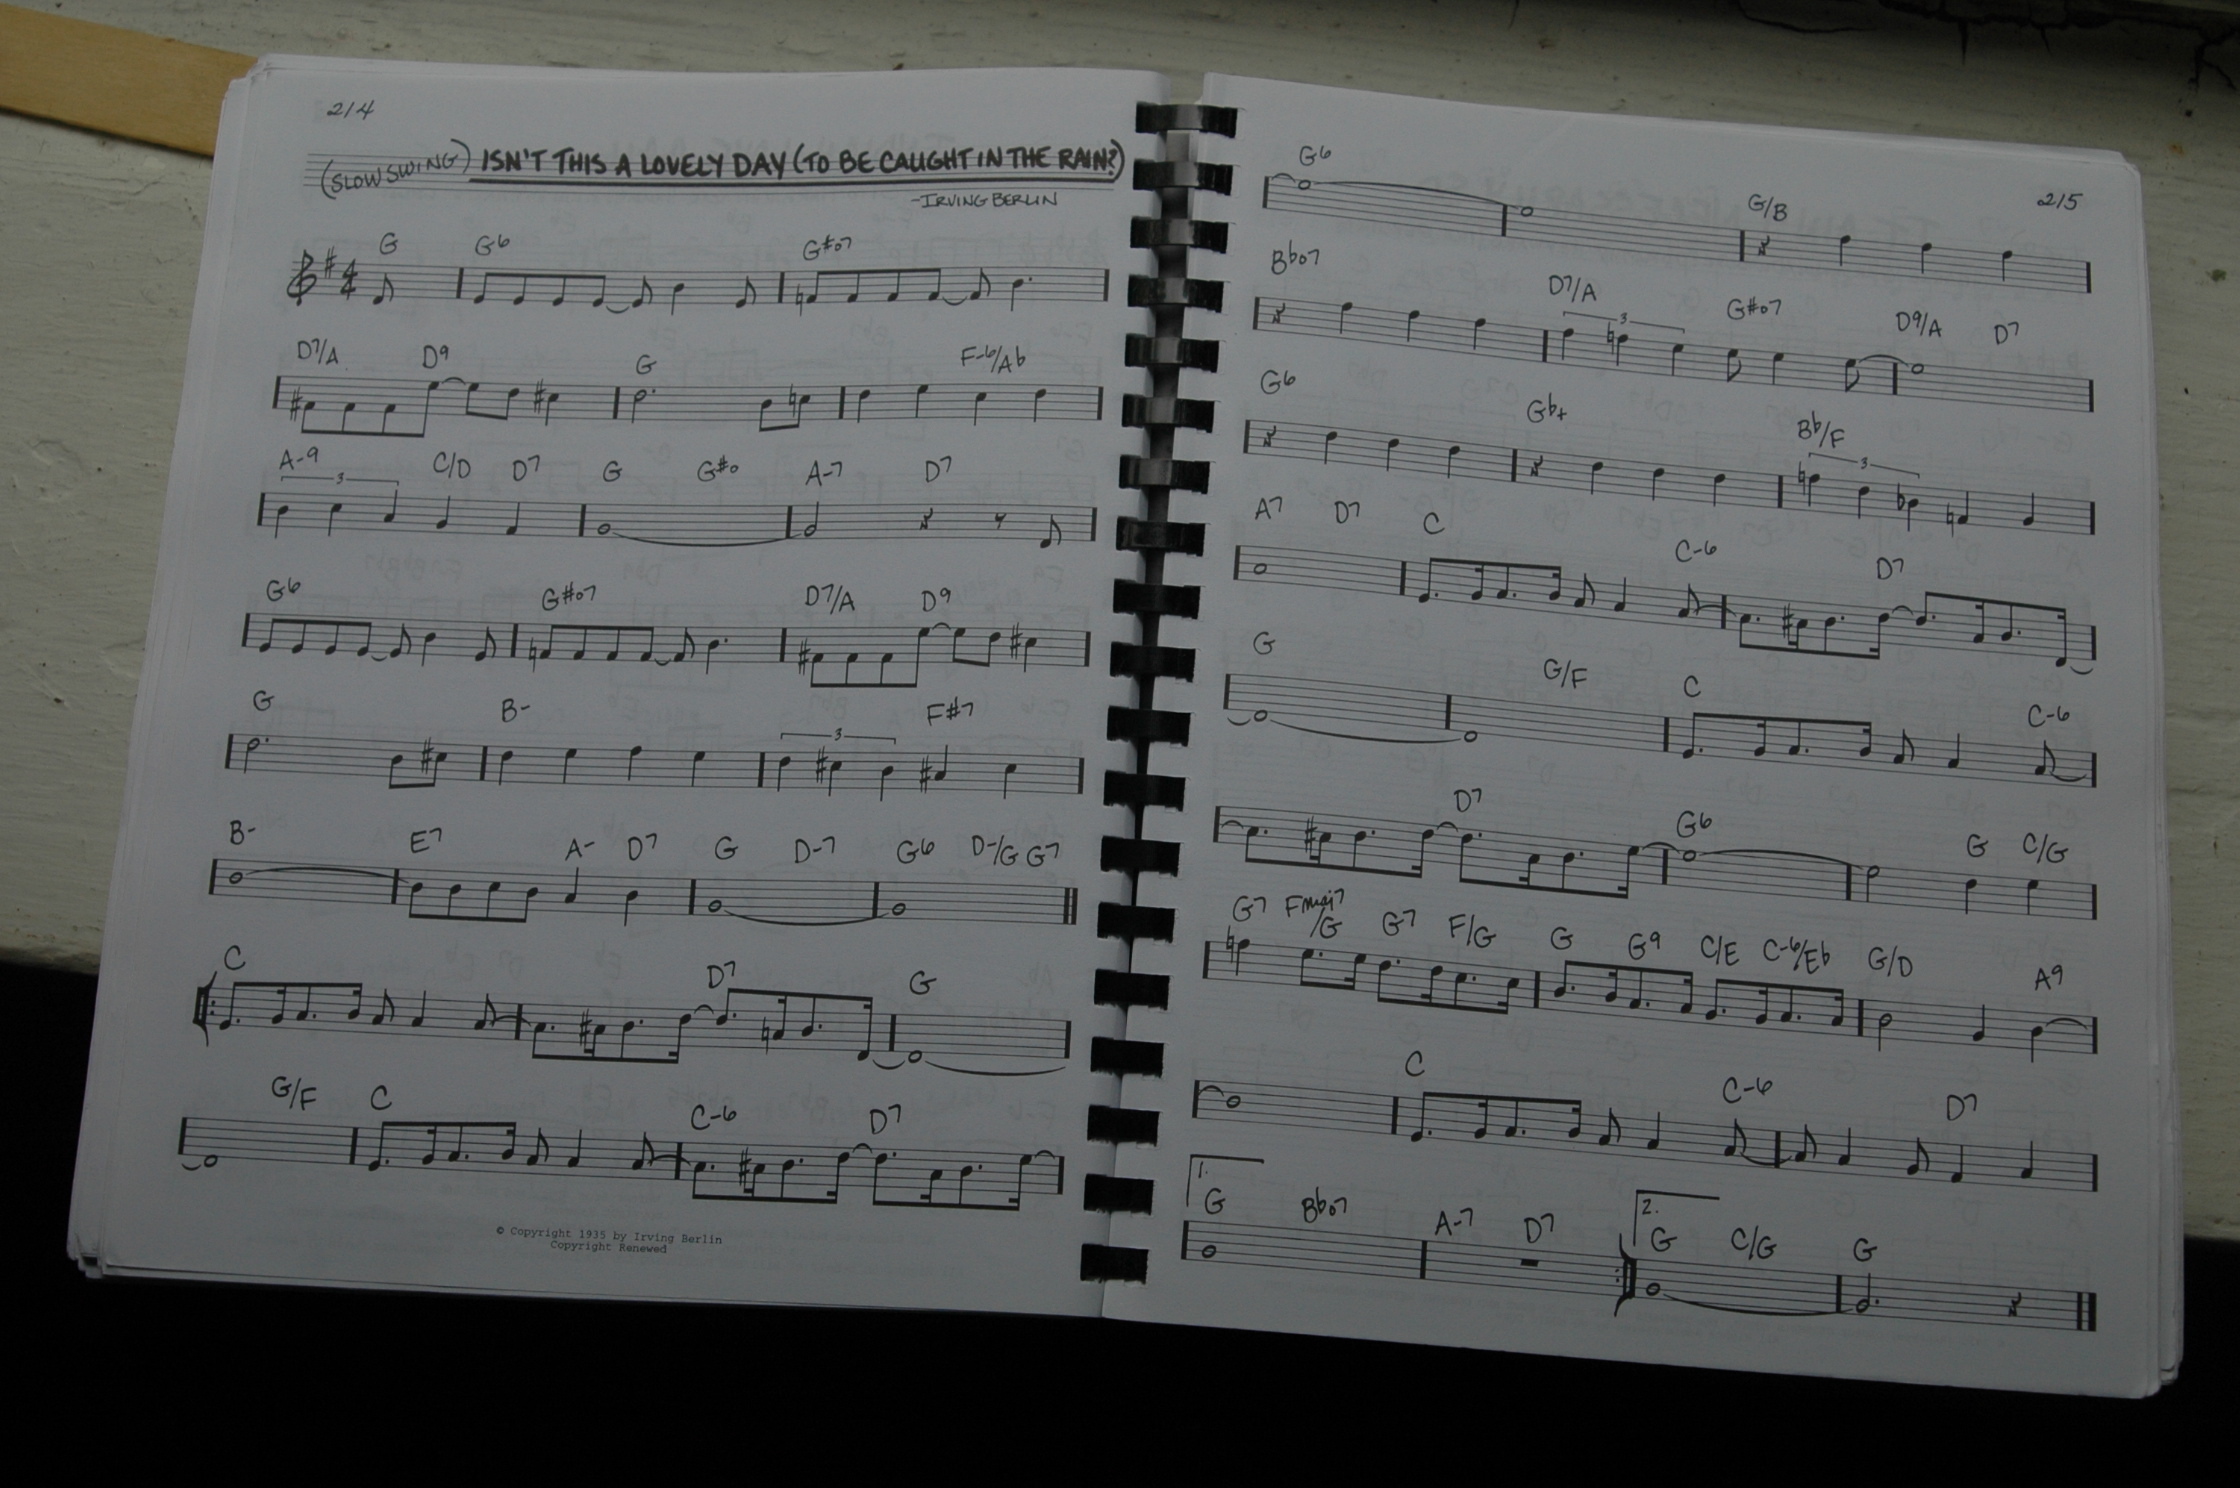 214
(SLOW SWING) ISN'T THIS A LOVELY DAY (TO BE CAUGHT IN THE RAIN?)
-IRVING BERLIN
G G6 G#o7
4 4
D7/A D9 G F-6/Ab
A-9 C/D D7 G G#o A-7 D7
3
G6 G#o7 D7/A D9
G B- F#7
3
B- E7 A- D7 G D-7 G6 D-/G G7
C D7 G
G/F C C-6 D7
© Copyright 1935 by Irving Berlin
Copyright Renewed
215
G6 G/B
Bbo7 D7/A G#o7 D9/A D7
3
G6 Gb+ Bb/F
3
A7 D7 C C-6 D7
G G/F C C-6
D7 G6 G C/G
G7 Fmaj7/G G7 F/G G G9 C/E C-6/Eb G/D A9
C C-6 D7
1. 2.
G Bbo7 A-7 D7 G C/G G